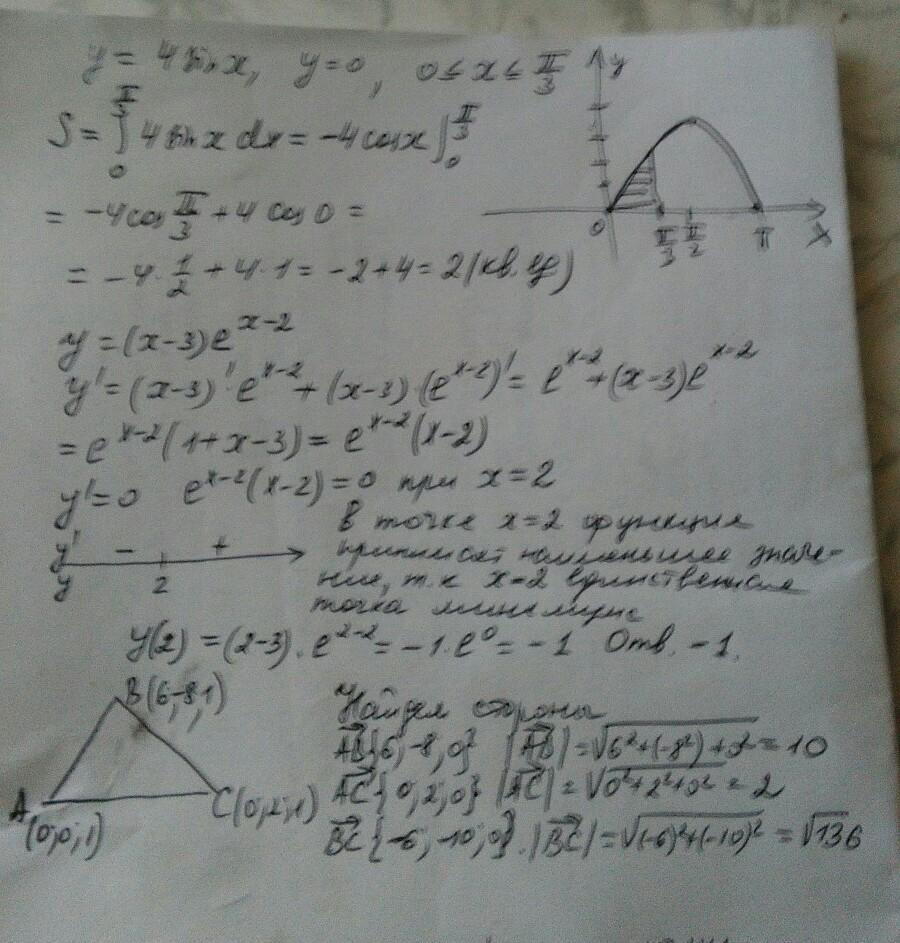 y = 4 sin x, y=0, 0 ≤ x ≤ π/3
S = ∫₀^(π/3) 4 sin x dx = -4 cos x |₀^(π/3)
= -4 cos π/3 + 4 cos 0 =
= -4 · 1/2 + 4 · 1 = -2+4 = 2 (кв. ед)
y
0 π/3 π/2 π x
y = (x-3)e^(x-2)
y' = (x-3)' · e^(x-2) + (x-3) · (e^(x-2))' = e^(x-2) + (x-3)e^(x-2)
= e^(x-2)(1+x-3) = e^(x-2)(x-2)
y'=0 e^(x-2)(x-2)=0 при x=2
y' − +
y 2
В точке x=2 функция
принимает наименьшее значе-
ние, т.к x=2 единственная
точка минимума
y(2) = (2-3) · e^(2-2) = -1 · e^0 = -1 Отв. -1.
B(6,-8,1)
A(0;0;1)
C(0;2;1)
Найдем стороны
AB{6, -8, 0} |AB| = √(6²+(-8²)+0²) = 10
AC{0, 2, 0} |AC| = √(0²+2²+0²) = 2
BC{-6, -10, 0}. |BC| = √((-6)²+(-10)²) = √136